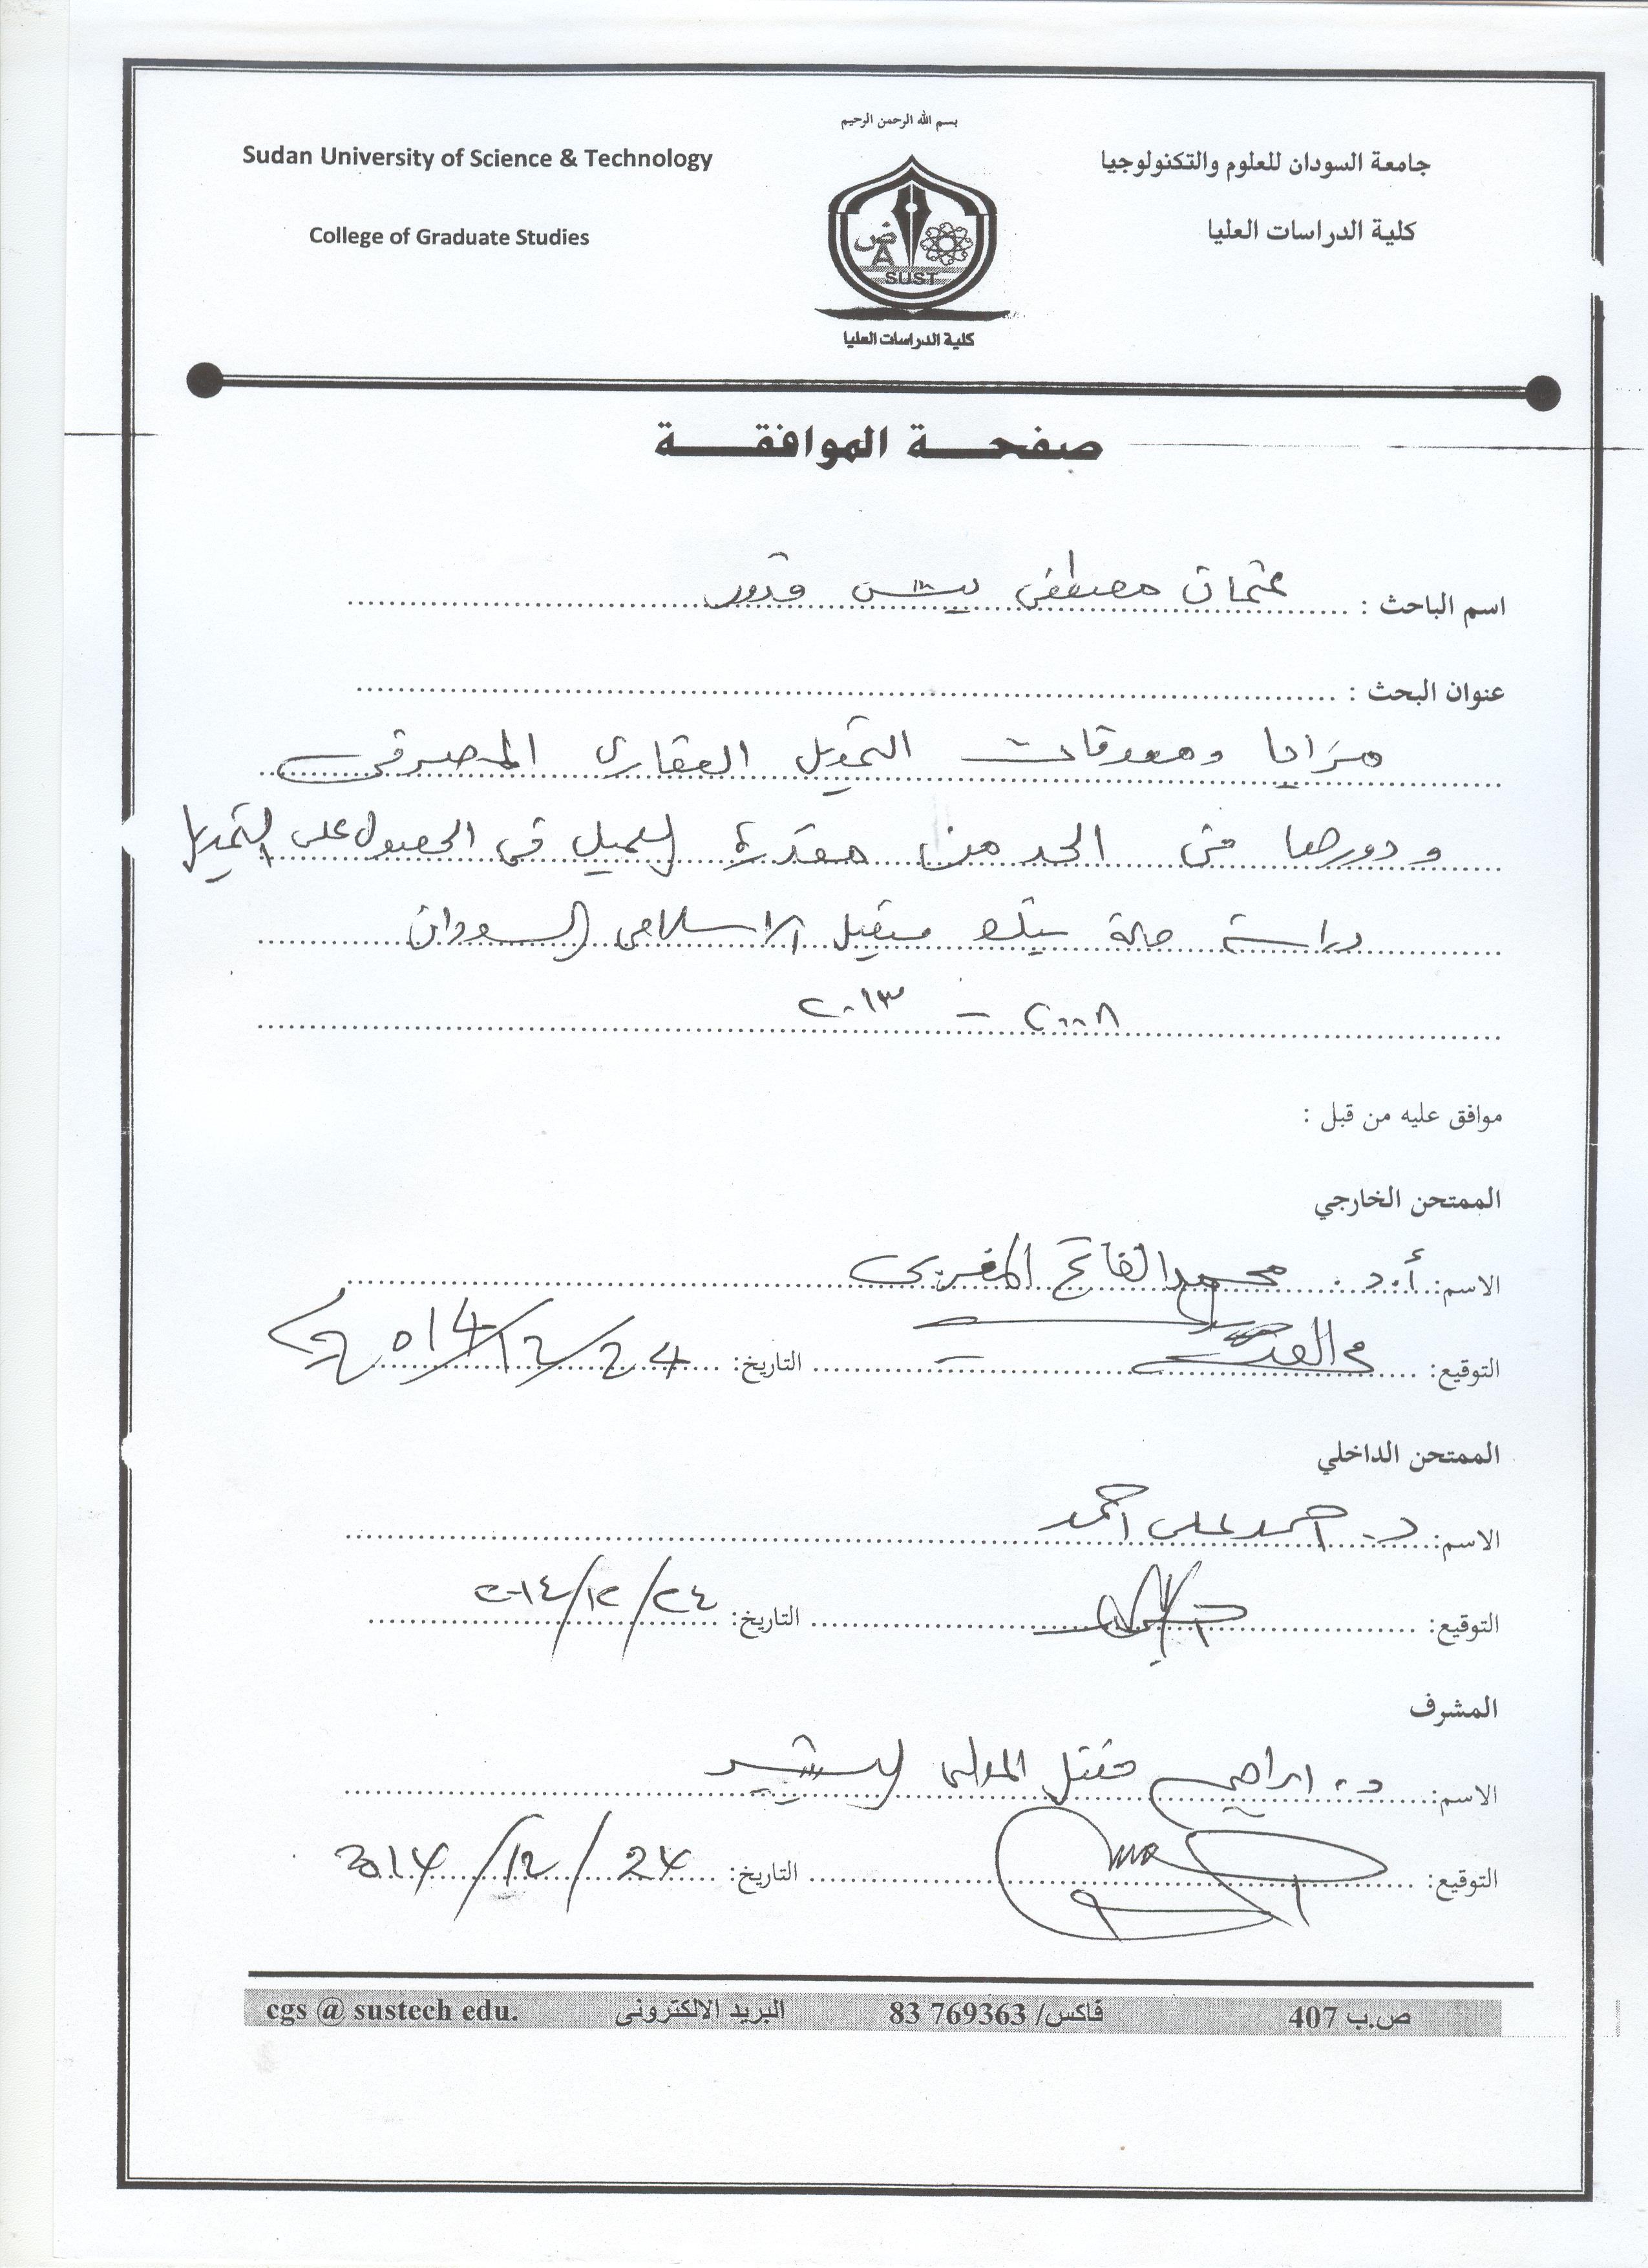 بسم الله الرحمن الرحيم
جامعة السودان للعلوم والتكنولوجيا
Sudan University of Science & Technology
كلية الدراسات العليا
College of Graduate Studies
ض
A
SUST
كلية الدراسات العليا
صفحة الموافقة
اسم الباحث : عثمان مصطفى قدور
عنوان البحث :
مزايا ومعوقات التمويل العقاري المصرفى
ودورها فى الحد من مقدرة العميل فى الحصول على التمويل
دراسة حالة بنك الاسلامى السودان
٢٠٠٨ – ٢٠١٣
موافق عليه من قبل :
الممتحن الخارجي
الاسم: أ.د. محمد الفاتح المغربى
التوقيع: التاريخ: 24/12/2014
الممتحن الداخلي
الاسم: د. احمد على احمد
التوقيع: التاريخ: ٢٤/١٢/٢٠١٤
المشرف
الاسم: د. ابراهيم فضل المولى البشير
التوقيع: التاريخ: 24/12/2014
ص.ب 407 فاكس/ 769363 83 البريد الالكترونى cgs @ sustech edu.